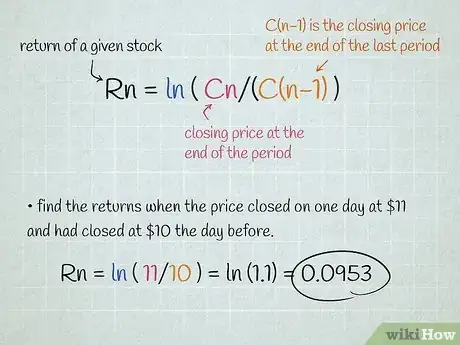 C(n-1) is the closing price
at the end of the last period
return of a given stock
Rn = ln ( Cn/(C(n-1) )
closing price at the
end of the period
• find the returns when the price closed on one day at $11
and had closed at $10 the day before.
Rn = ln ( 11/10 ) = ln (1.1) = 0.0953
wikiHow